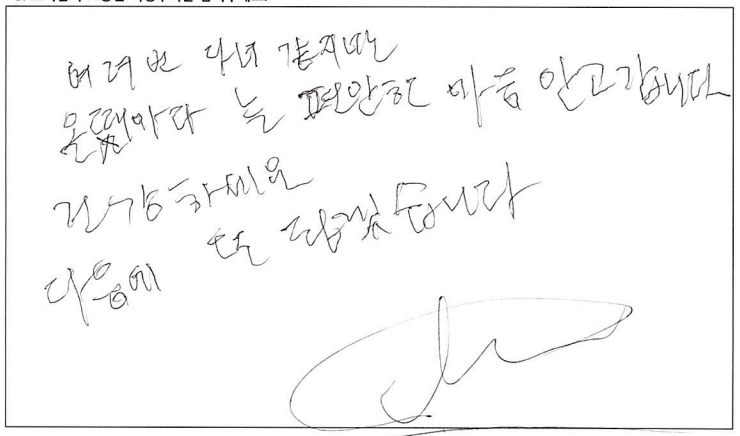 여러번 다녀 갔지만
올때마다 늘 편안한 마음 안고 갑니다
건강하세요
다음에 또 뵙겠습니다